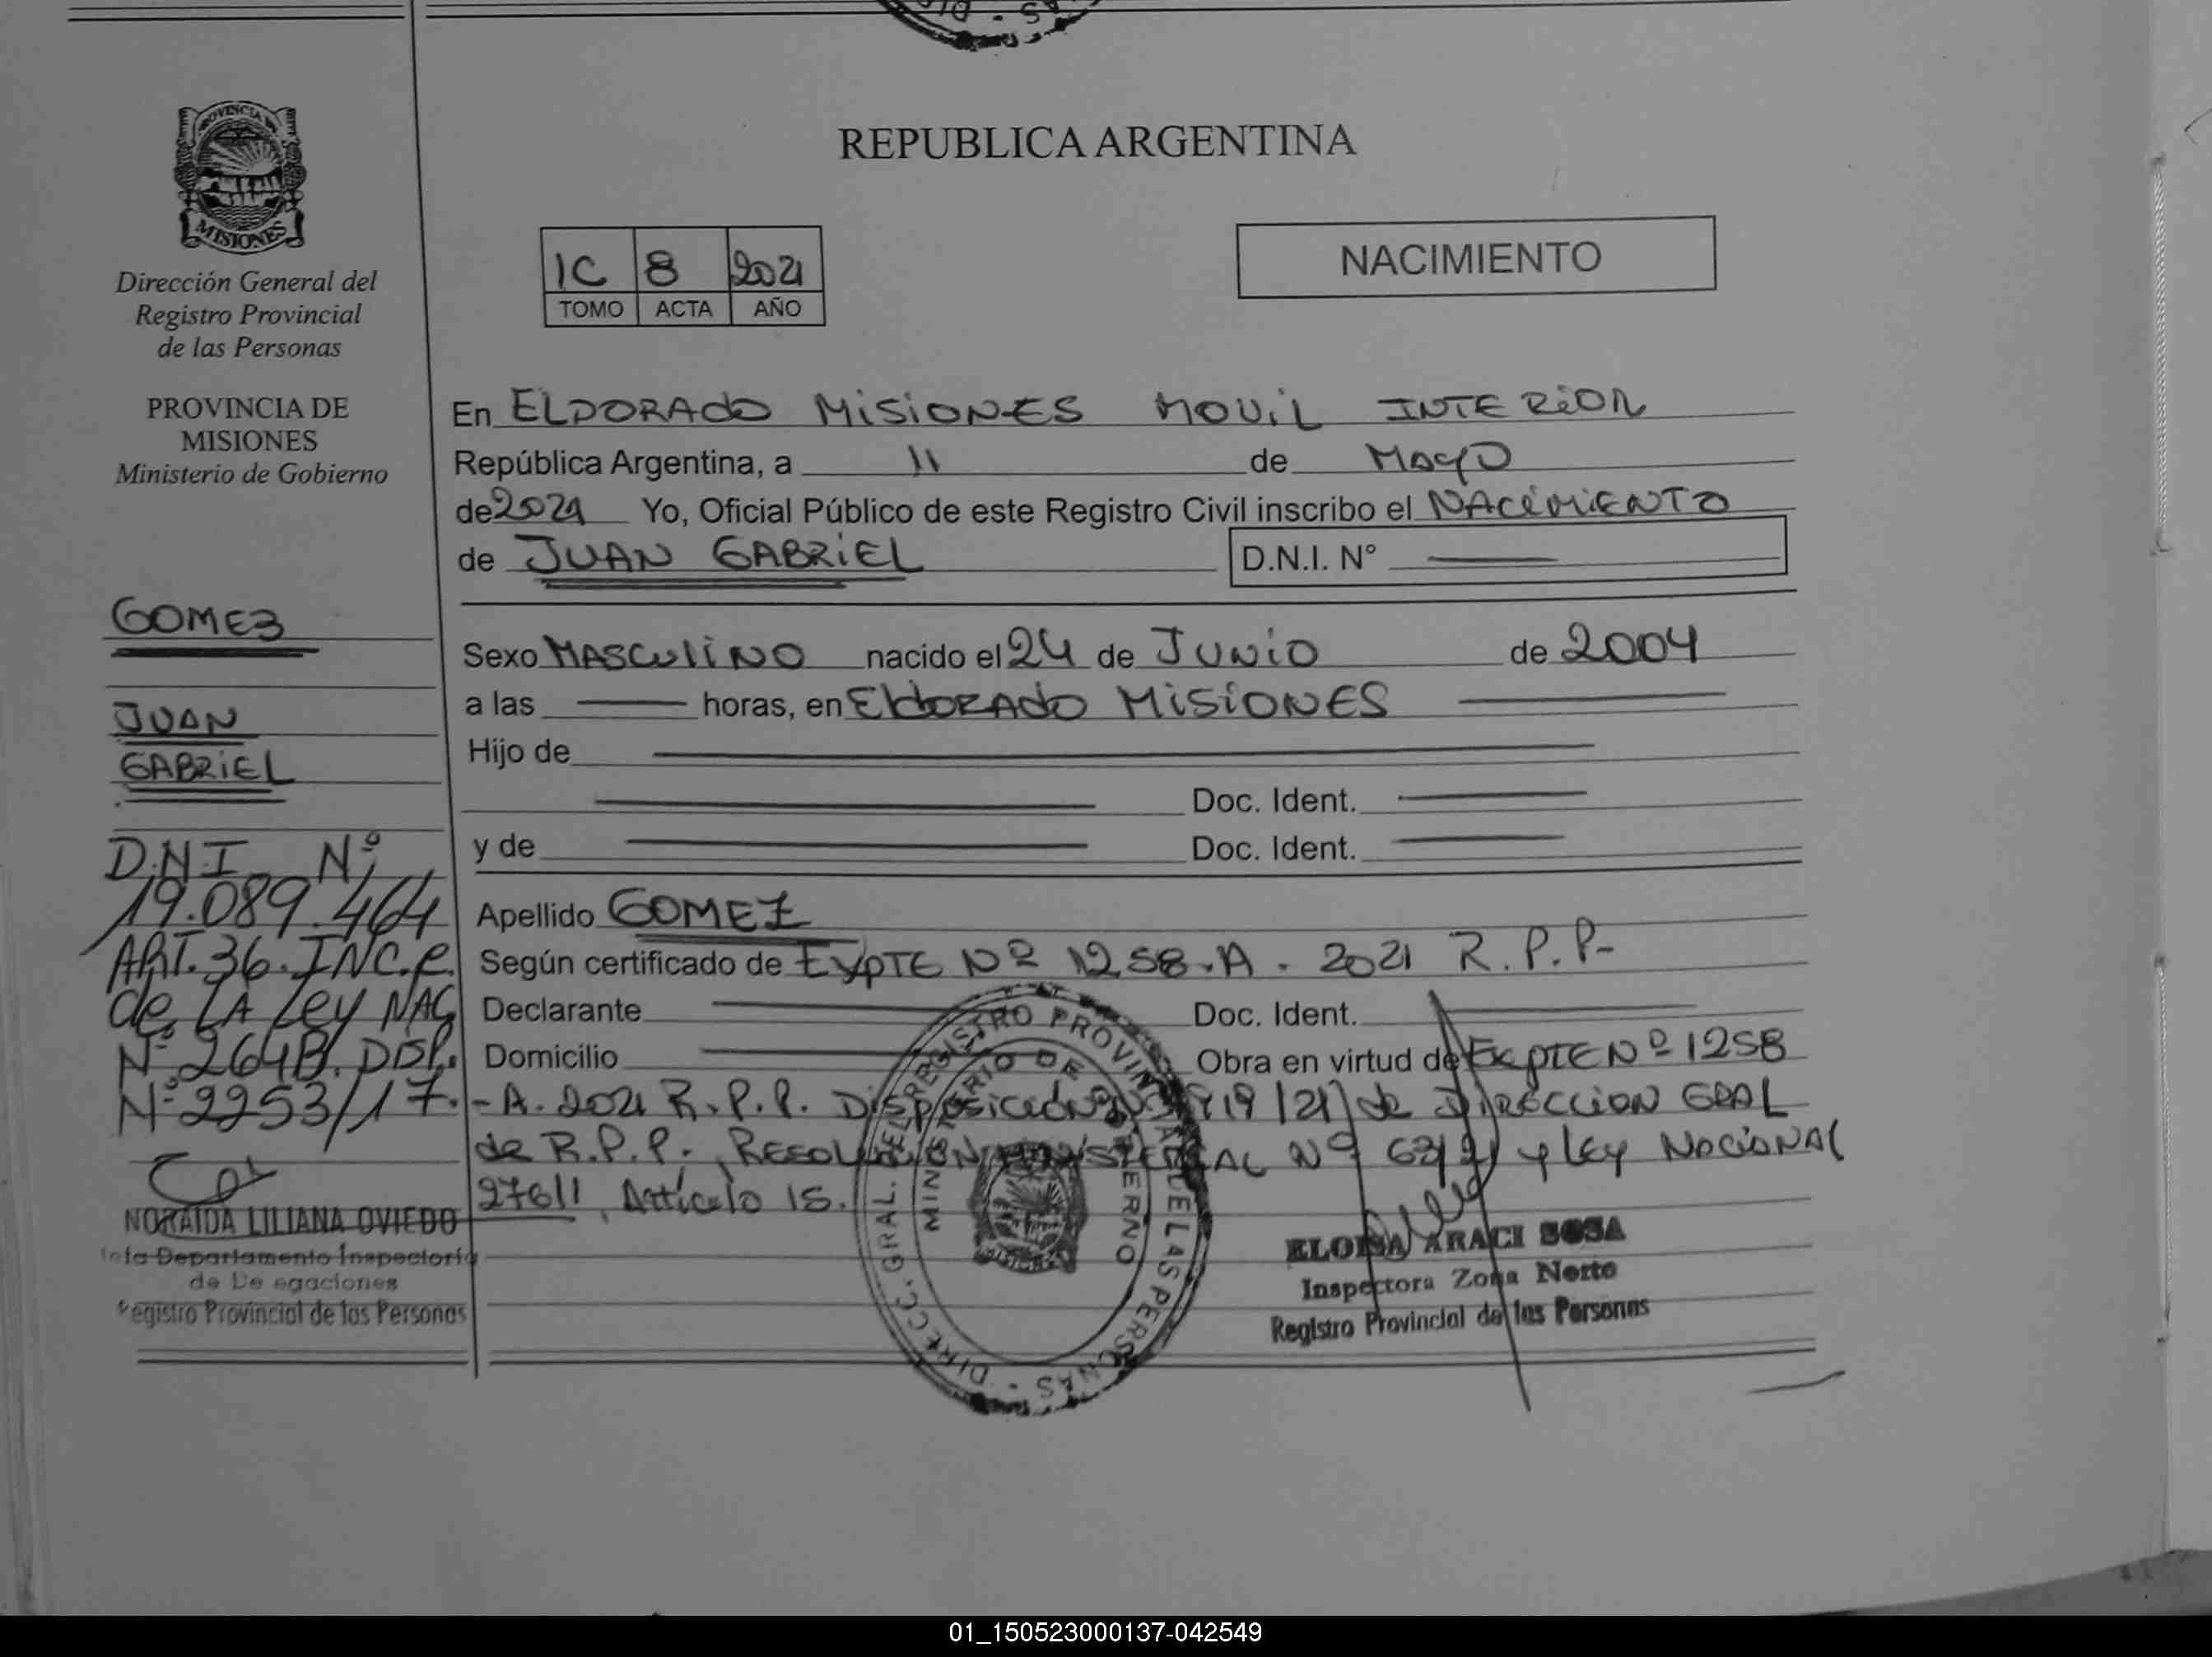 PROVINCIA DE
MISIONES
Dirección General del
Registro Provincial
de las Personas
PROVINCIA DE
MISIONES
Ministerio de Gobierno
GOMEZ
JUAN
GABRIEL
D.N.I. Nº
19.089.464
ART. 36. INC. e.
de LA Ley NAC
Nº 26413. DISP.
Nº 2253/17.
NORAIDA LILIANA OVIEDO
Departamento Inspectoría
de Delegaciones
Registro Provincial de las Personas
REPUBLICA ARGENTINA
1C 8 2021
TOMO ACTA AÑO
NACIMIENTO
En ELDORADO MISIONES MOVIL INTERIOR
República Argentina, a 11 de MAYO
de 2021 Yo, Oficial Público de este Registro Civil inscribo el NACIMIENTO
de JUAN GABRIEL D.N.I. N°
Sexo MASCULINO nacido el 24 de JUNIO de 2004
a las horas, en ELDORADO MISIONES
Hijo de
Doc. Ident.
y de Doc. Ident.
Apellido GOMEZ
Según certificado de EXPTE Nº 1258-A. 2021 R.P.P-
Declarante Doc. Ident.
Domicilio Obra en virtud de EXPTE Nº 1258
-A. 2021 R.P.P. DISPOSICIÓN de DIRECCION GRAL
de R.P.P. RESOLUCION MINISTERIAL Nº y LEY NACIONAL
27611, Artículo 15.
DIRECC. GRAL. DEL REGISTRO PROVINCIAL DE LAS PERSONAS
MINISTERIO DE GOBIERNO
ELOISA ARACI SOSA
Inspectora Zona Norte
Registro Provincial de las Personas
01_150523000137-042549